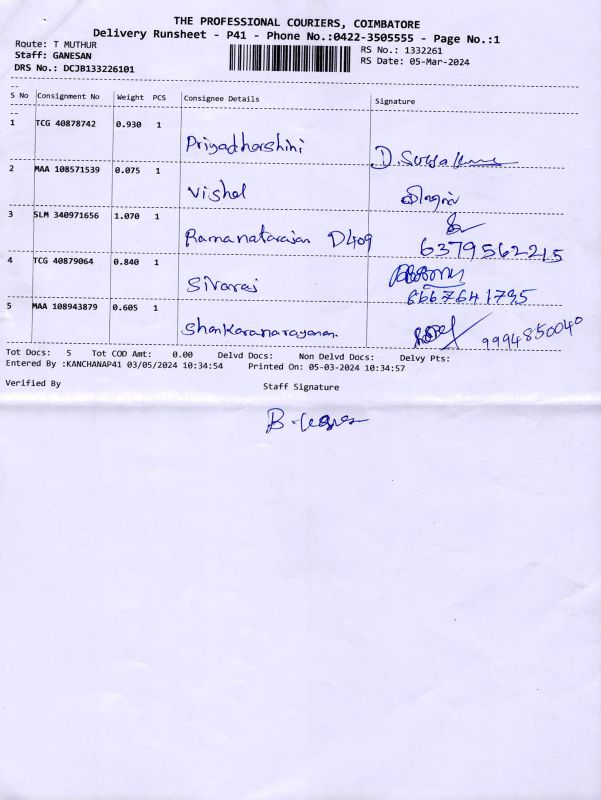 THE PROFESSIONAL COURIERS, COIMBATORE
Delivery Runsheet - P41 - Phone No.:0422-3505555 - Page No.:1
Route: T MUTHUR
Staff: GANESAN
DRS No.: DCJB133226101
RS No.: 1332261
RS Date: 05-Mar-2024
S No Consignment No Weight PCS Consignee Details Signature
1 TCG 40878742 0.930 1
Priyadharshini
2 MAA 108571539 0.075 1
Vishal
3 SLM 340971656 1.070 1
Ramanatarajan D409 6379562215
4 TCG 40879064 0.840 1
Sivaraj
6667641795
5 MAA 108943879 0.605 1
Shankaranarayanan. 9994850040
Tot Docs: 5 Tot COD Amt: 0.00 Delvd Docs: Non Delvd Docs: Delvy Pts:
Entered By :KANCHANAP41 03/05/2024 10:34:54 Printed On: 05-03-2024 10:34:57
Verified By Staff Signature